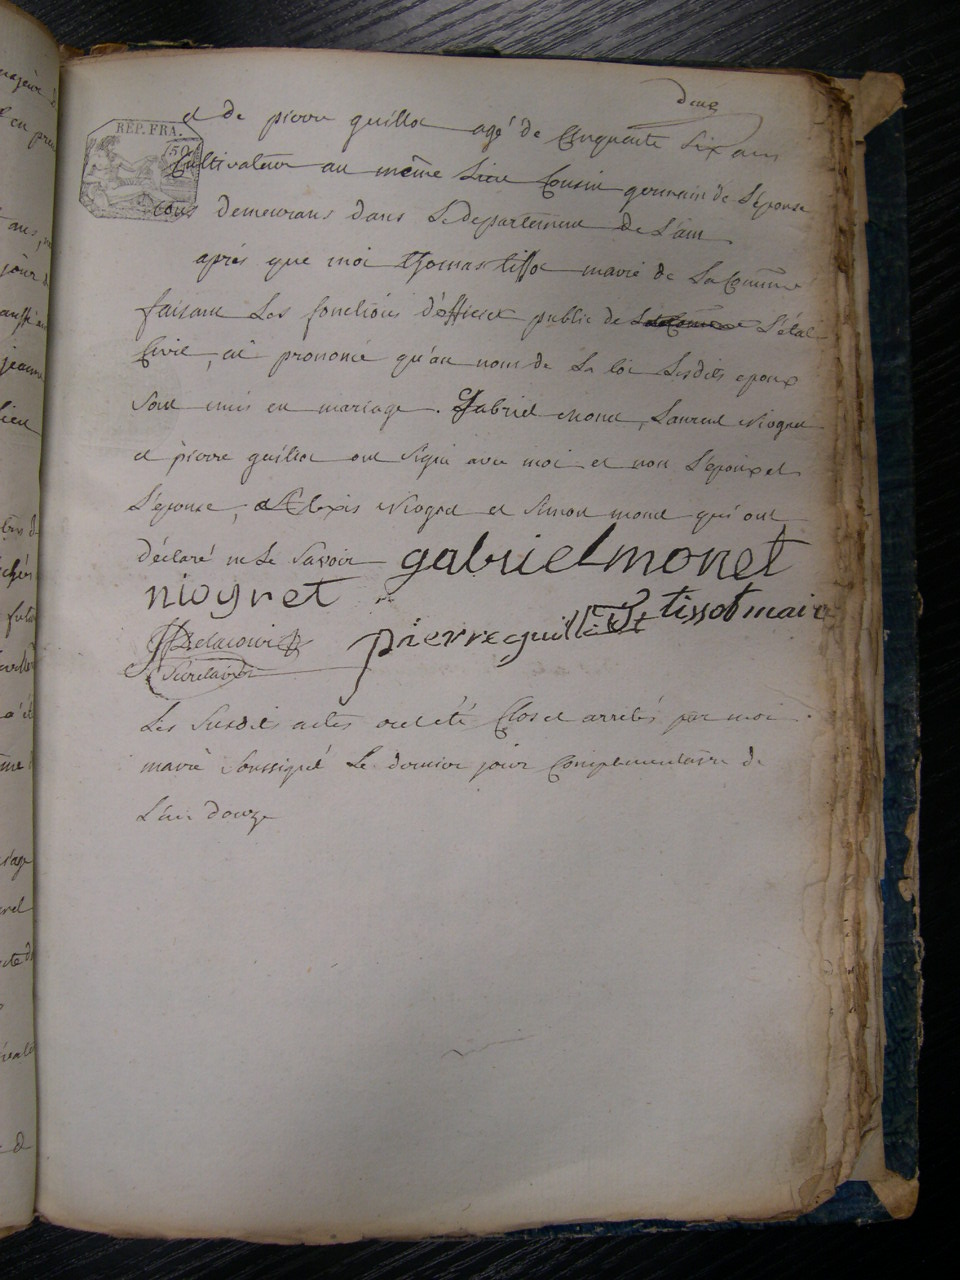 douze
REP. FRA.
50
et de pierre guillot agé de Cinquante Six ans
Cultivateur au même Lieu Cousin germain de L'épouse
tous demeurans dans Le departement de L'ain
après que moi thomas tissot maire de La Commune
faisant Les fonctions d'officier public de L'état
Civil, ai prononcé qu'au nom de La loi Lesdits epoux
Sont unis en mariage. Gabriel monet, Laurent Niogret
et pierre guillot ont Signé avec moi et non L'époux et
L'épouse, Alexis Niogret et Simon monet qui ont
déclaré ne Le Savoir gabriel monet
niogret
tissot maire
pierre guillot
Delacour
Secretaire
Les Susdits actes ont été Clos et arrêtés par moi
maire Soussigné Le dernier jour Complementaire de
L'an douze